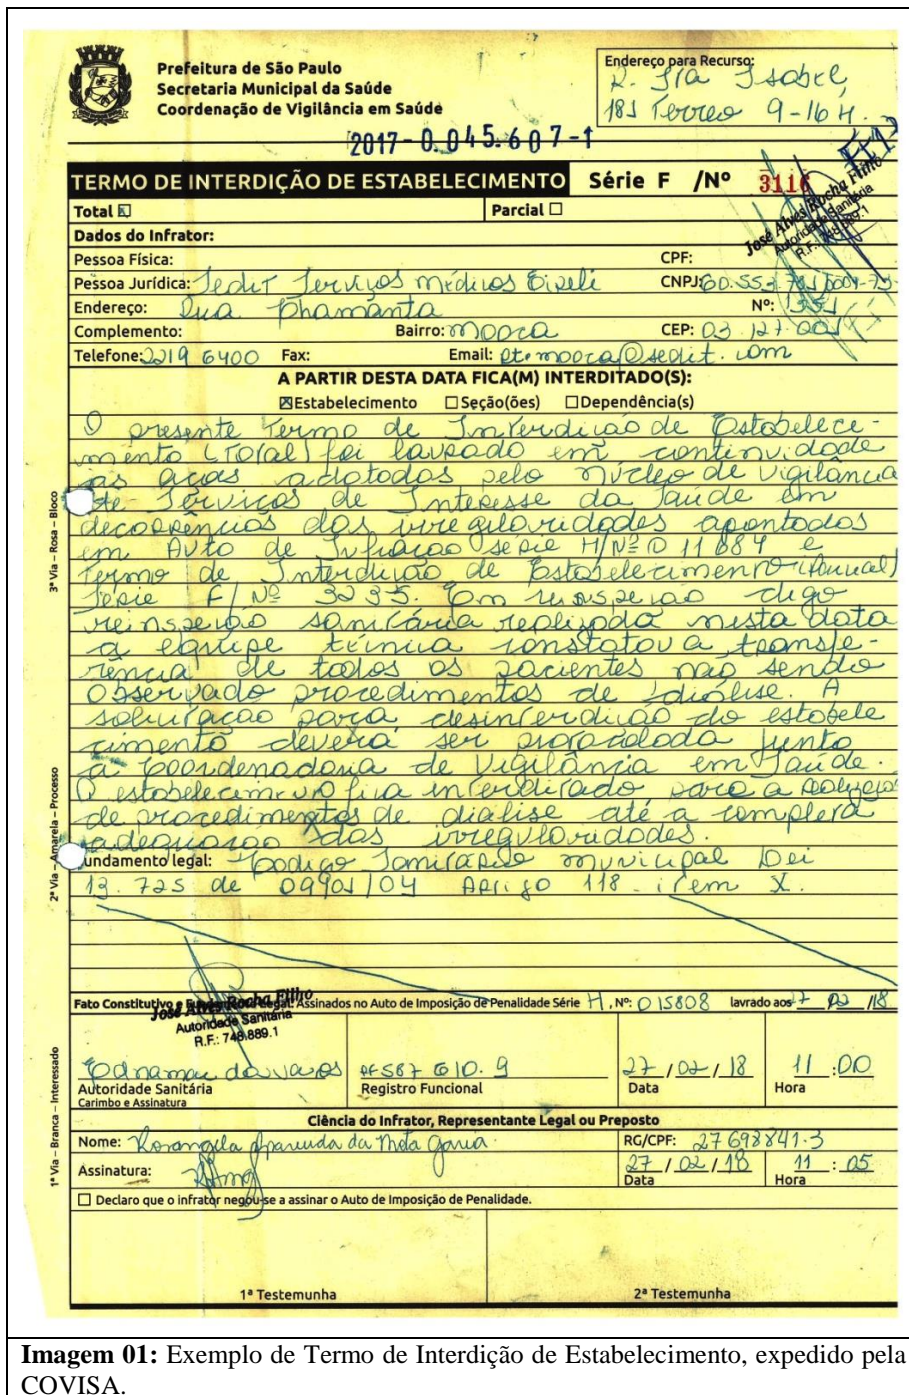 Prefeitura de São Paulo
Secretaria Municipal da Saúde
Coordenação de Vigilância em Saúde
Endereço para Recurso:
R. Sta Isabel
181 Terreo 9-16 H.
2017-0.045.607-1
TERMO DE INTERDIÇÃO DE ESTABELECIMENTO Série F /Nº 3116
José Alves Rocha Filho
Autoridade Sanitária
R.F.: 748.889.1
Total ☒ Parcial ☐
Dados do Infrator:
Pessoa Física: CPF:
Pessoa Jurídica: Sedit Serviços médicos Eireli CNPJ:
Endereço: Rua Nº: 1351
Complemento: Bairro: Mooca CEP: 03 127 001
Telefone: 2219 6400 Fax: Email: @sedit.com
A PARTIR DESTA DATA FICA(M) INTERDITADO(S):
☒Estabelecimento ☐Seção(ões) ☐Dependência(s)
O presente Termo de Interdição de Estabeleci-
mento (Total) foi lavrado em continuidade
as ações adotadas pelo Núcleo de Vigilância
de Serviços de Interesse da Saúde em
decorrências das irregularidades apontadas
em Auto de Infração série H/Nº 011684 e
Termo de Interdição de Estabelecimento
série F/Nº 3235. Em digo
reinspeção sanitária realizada nesta data
a equipe técnica constatou a transfe-
rência de todos os pacientes não sendo
observado procedimentos de diálise. A
solicitação para desinterdição do estabele
cimento deverá ser protocolada junto
a Coordenadoria de Vigilância em Saúde.
O estabelecimento fica interditado para a
de procedimentos de diálise até a completa
adequação das irregularidades.
Fundamento legal: Codigo Sanitário municipal Lei
13.725 de 09/01/04 Artigo 118 - item X.
Fato Constitutivo e Fundamento Legal: Assinados no Auto de Imposição de Penalidade Série H. Nº: 015808 lavrado aos 27 02 /18
José Alves Rocha Filho
Autoridade Sanitária
R.F.: 748.889.1
RF 587 610. 9 27/02/18 11:00
Autoridade Sanitária Registro Funcional Data Hora
Carimbo e Assinatura
Ciência do Infrator, Representante Legal ou Preposto
Nome: Rosangela Aparecida da Mota Garcia RG/CPF: 27698841-3
Assinatura: 27/02/18 11:05
Data Hora
☐ Declaro que o infrator negou-se a assinar o Auto de Imposição de Penalidade.
1ª Testemunha 2ª Testemunha
3ª Via – Rosa – Bloco
2ª Via – Amarela – Processo
1ª Via – Branca – Interessado
Imagem 01: Exemplo de Termo de Interdição de Estabelecimento, expedido pela
COVISA.